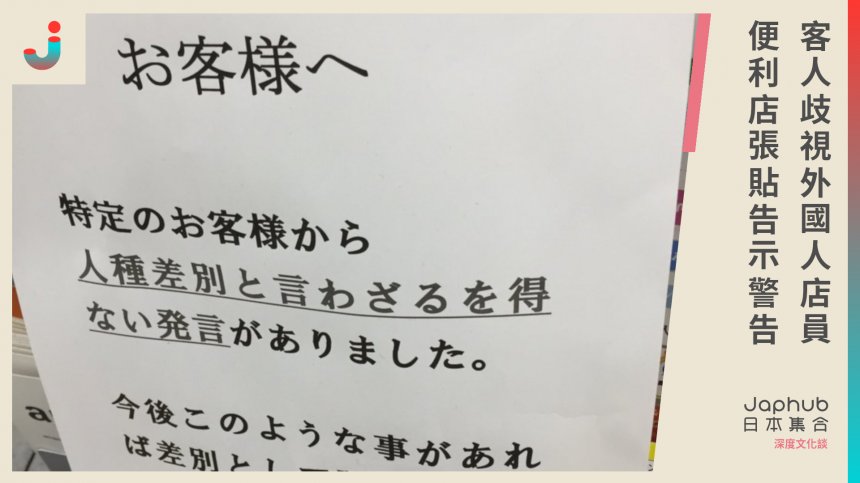 お客様へ
特定のお客様から
人種差別と言わざるを得
ない発言がありました。
今後このような事があれ
ば差別とし
客人歧視外國人店員
便利店張貼告示警告
Japhub
日本集合
深度文化談